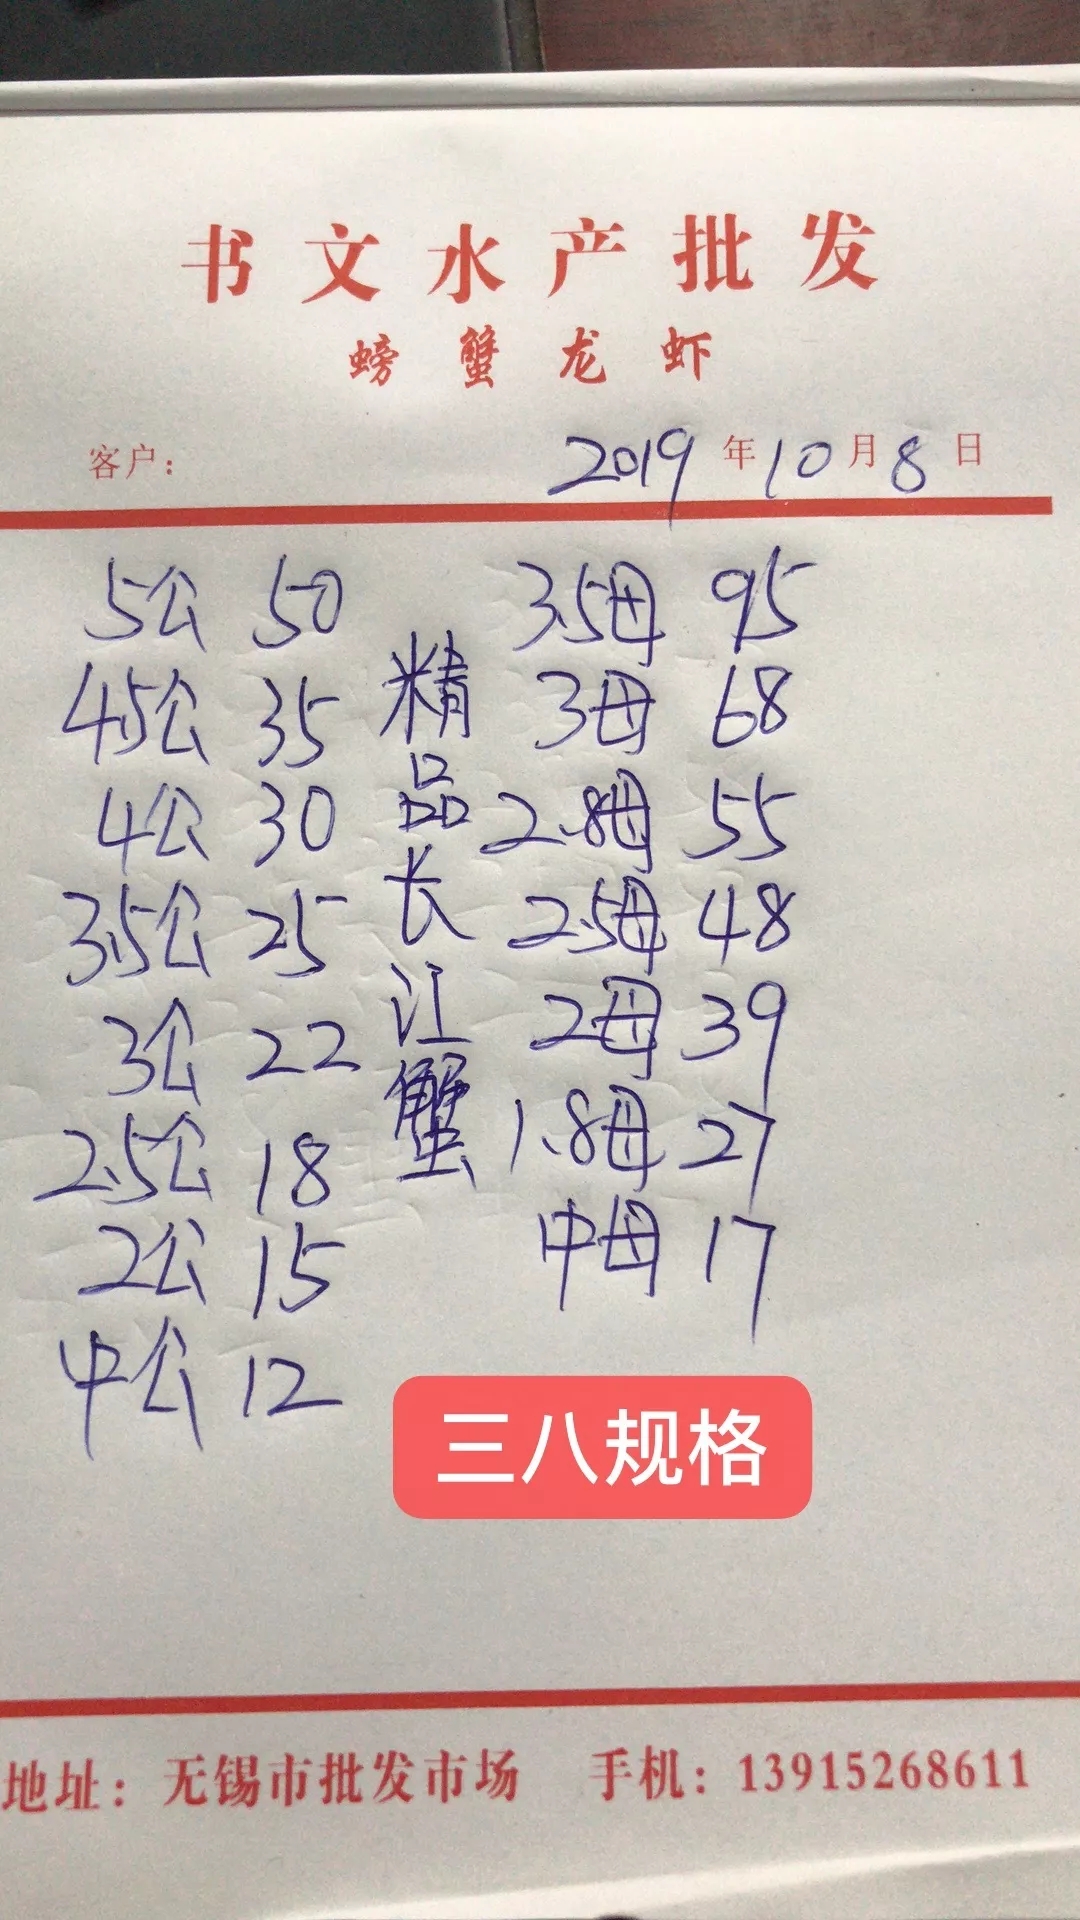 书文水产批发
螃蟹龙虾
客户： 2019年10月8日
5公 50
4.5公 35
4公 30
3.5公 25
3公 22
2.5公 18
2公 15
中公 12
精品长江蟹
3.5母 95
3母 68
2.8母 55
2.5母 48
2母 39
1.8母 27
中母 17
三八规格
地址：无锡市批发市场 手机：13915268611